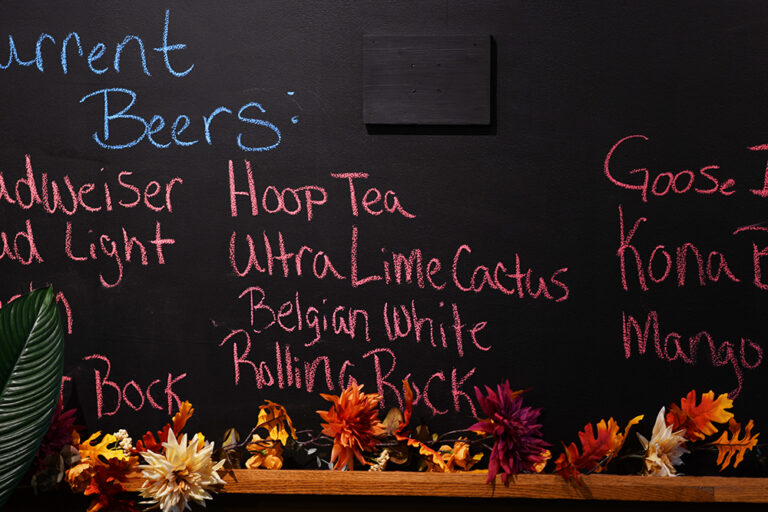 urrent
Beers:
udweiser
ud Light
Bock
Hoop Tea
Ultra Lime Cactus
Belgian White
Rolling Rock
Goose I
Kona B
Mango